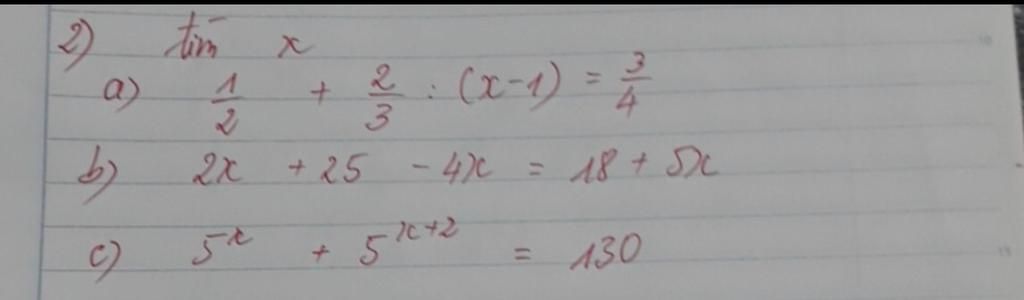 2) tìm x
a) 1/2 + 2/3 : (x-1) = 3/4
b) 2x + 25 - 4x = 18 + 5x
c) 5^x + 5^{x+2} = 130